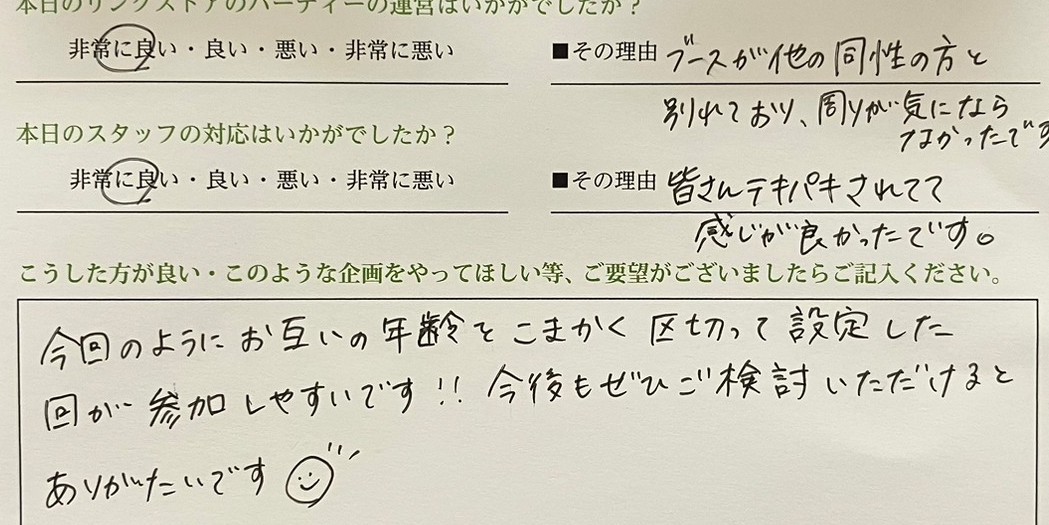 本日のリンクストアのパーティーの運営はいかがでしたか？
非常に良い・良い・悪い・非常に悪い
■その理由 ブースが他の同性の方と
別れており、周りが気になら
なかったです
本日のスタッフの対応はいかがでしたか？
非常に良い・良い・悪い・非常に悪い
■その理由 皆さんテキパキされてて
感じが良かったです。
こうした方が良い・このような企画をやってほしい等、ご要望がございましたらご記入ください。
今回のようにお互いの年齢をこまかく区切って設定した
回が参加しやすいです!! 今後もぜひご検討いただけると
ありがたいです